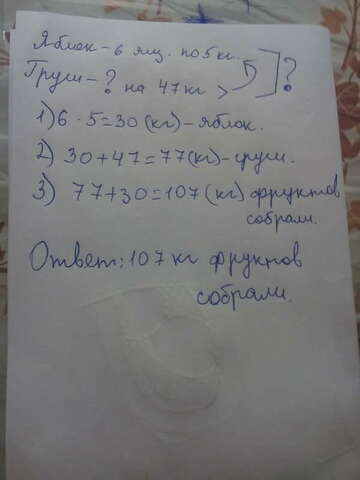 Яблок - 6 ящ. по 5 кг.
Груш - ? на 47 кг > ?
1) 6 · 5 = 30 (кг) - яблок.
2) 30 + 47 = 77 (кг) - груш.
3) 77 + 30 = 107 (кг) фруктов
собрали.
Ответ: 107 кг фруктов
собрали.